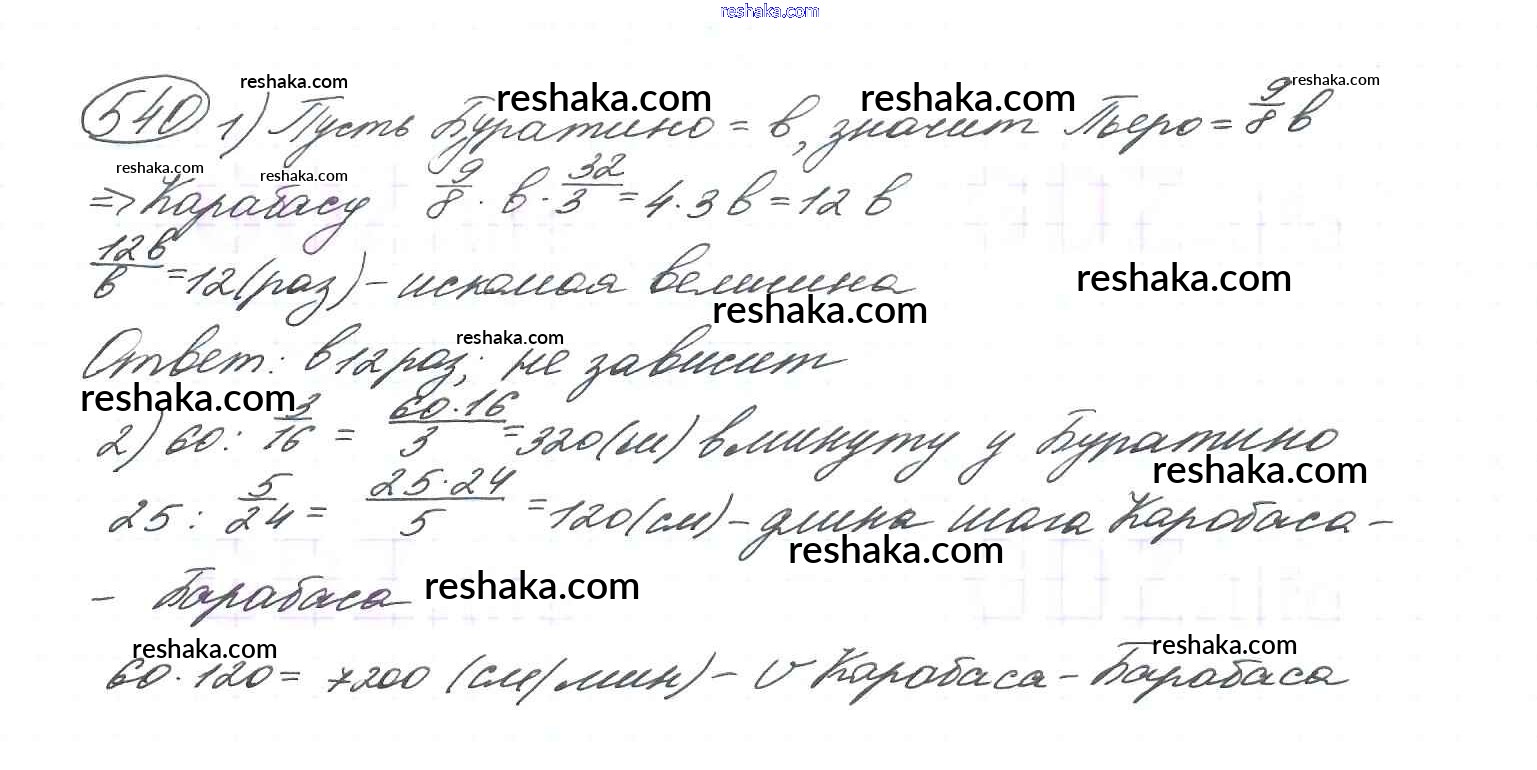 reshaka.com
reshaka.com reshaka.com reshaka.com reshaka.com
540 1) Пусть Буратино = в, значит Пьеро = 9/8 в
reshaka.com reshaka.com
=> Карабасу 9/8 · в · 32/3 = 4·3в = 12 в
12в/в = 12(раз) – искомая величина
reshaka.com
reshaka.com
reshaka.com
Ответ: в 12 раз; не зависит
reshaka.com
2) 60 : 3/16 = 60·16/3 = 320(ш) в минуту у Буратино
reshaka.com
25 : 5/24 = 25·24/5 = 120(см) – длина шага Карабаса –
reshaka.com
– Барабаса
reshaka.com
reshaka.com reshaka.com
60·120 = 7200 (см/мин) – V Карабаса – Барабаса